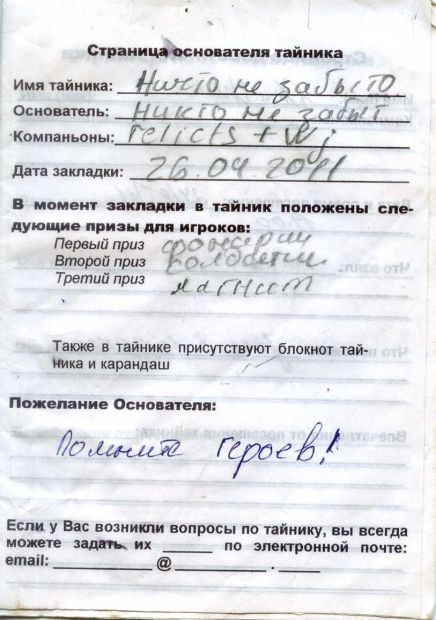 Страница основателя тайника
Имя тайника: Ничто не забыто
Основатель: Никто не забыт
Компаньоны: relicts + Wj
Дата закладки: 26.04.2011
В момент закладки в тайник положены сле-
дующие призы для игроков:
Первый приз фонарик
Второй приз
Третий приз магнит
Также в тайнике присутствуют блокнот тай-
ника и карандаш
Пожелание Основателя:
Помните героев!
Если у Вас возникли вопросы по тайнику, вы всегда
можете задать их ______ по электронной почте:
email: ____________ @ ____________ . _____